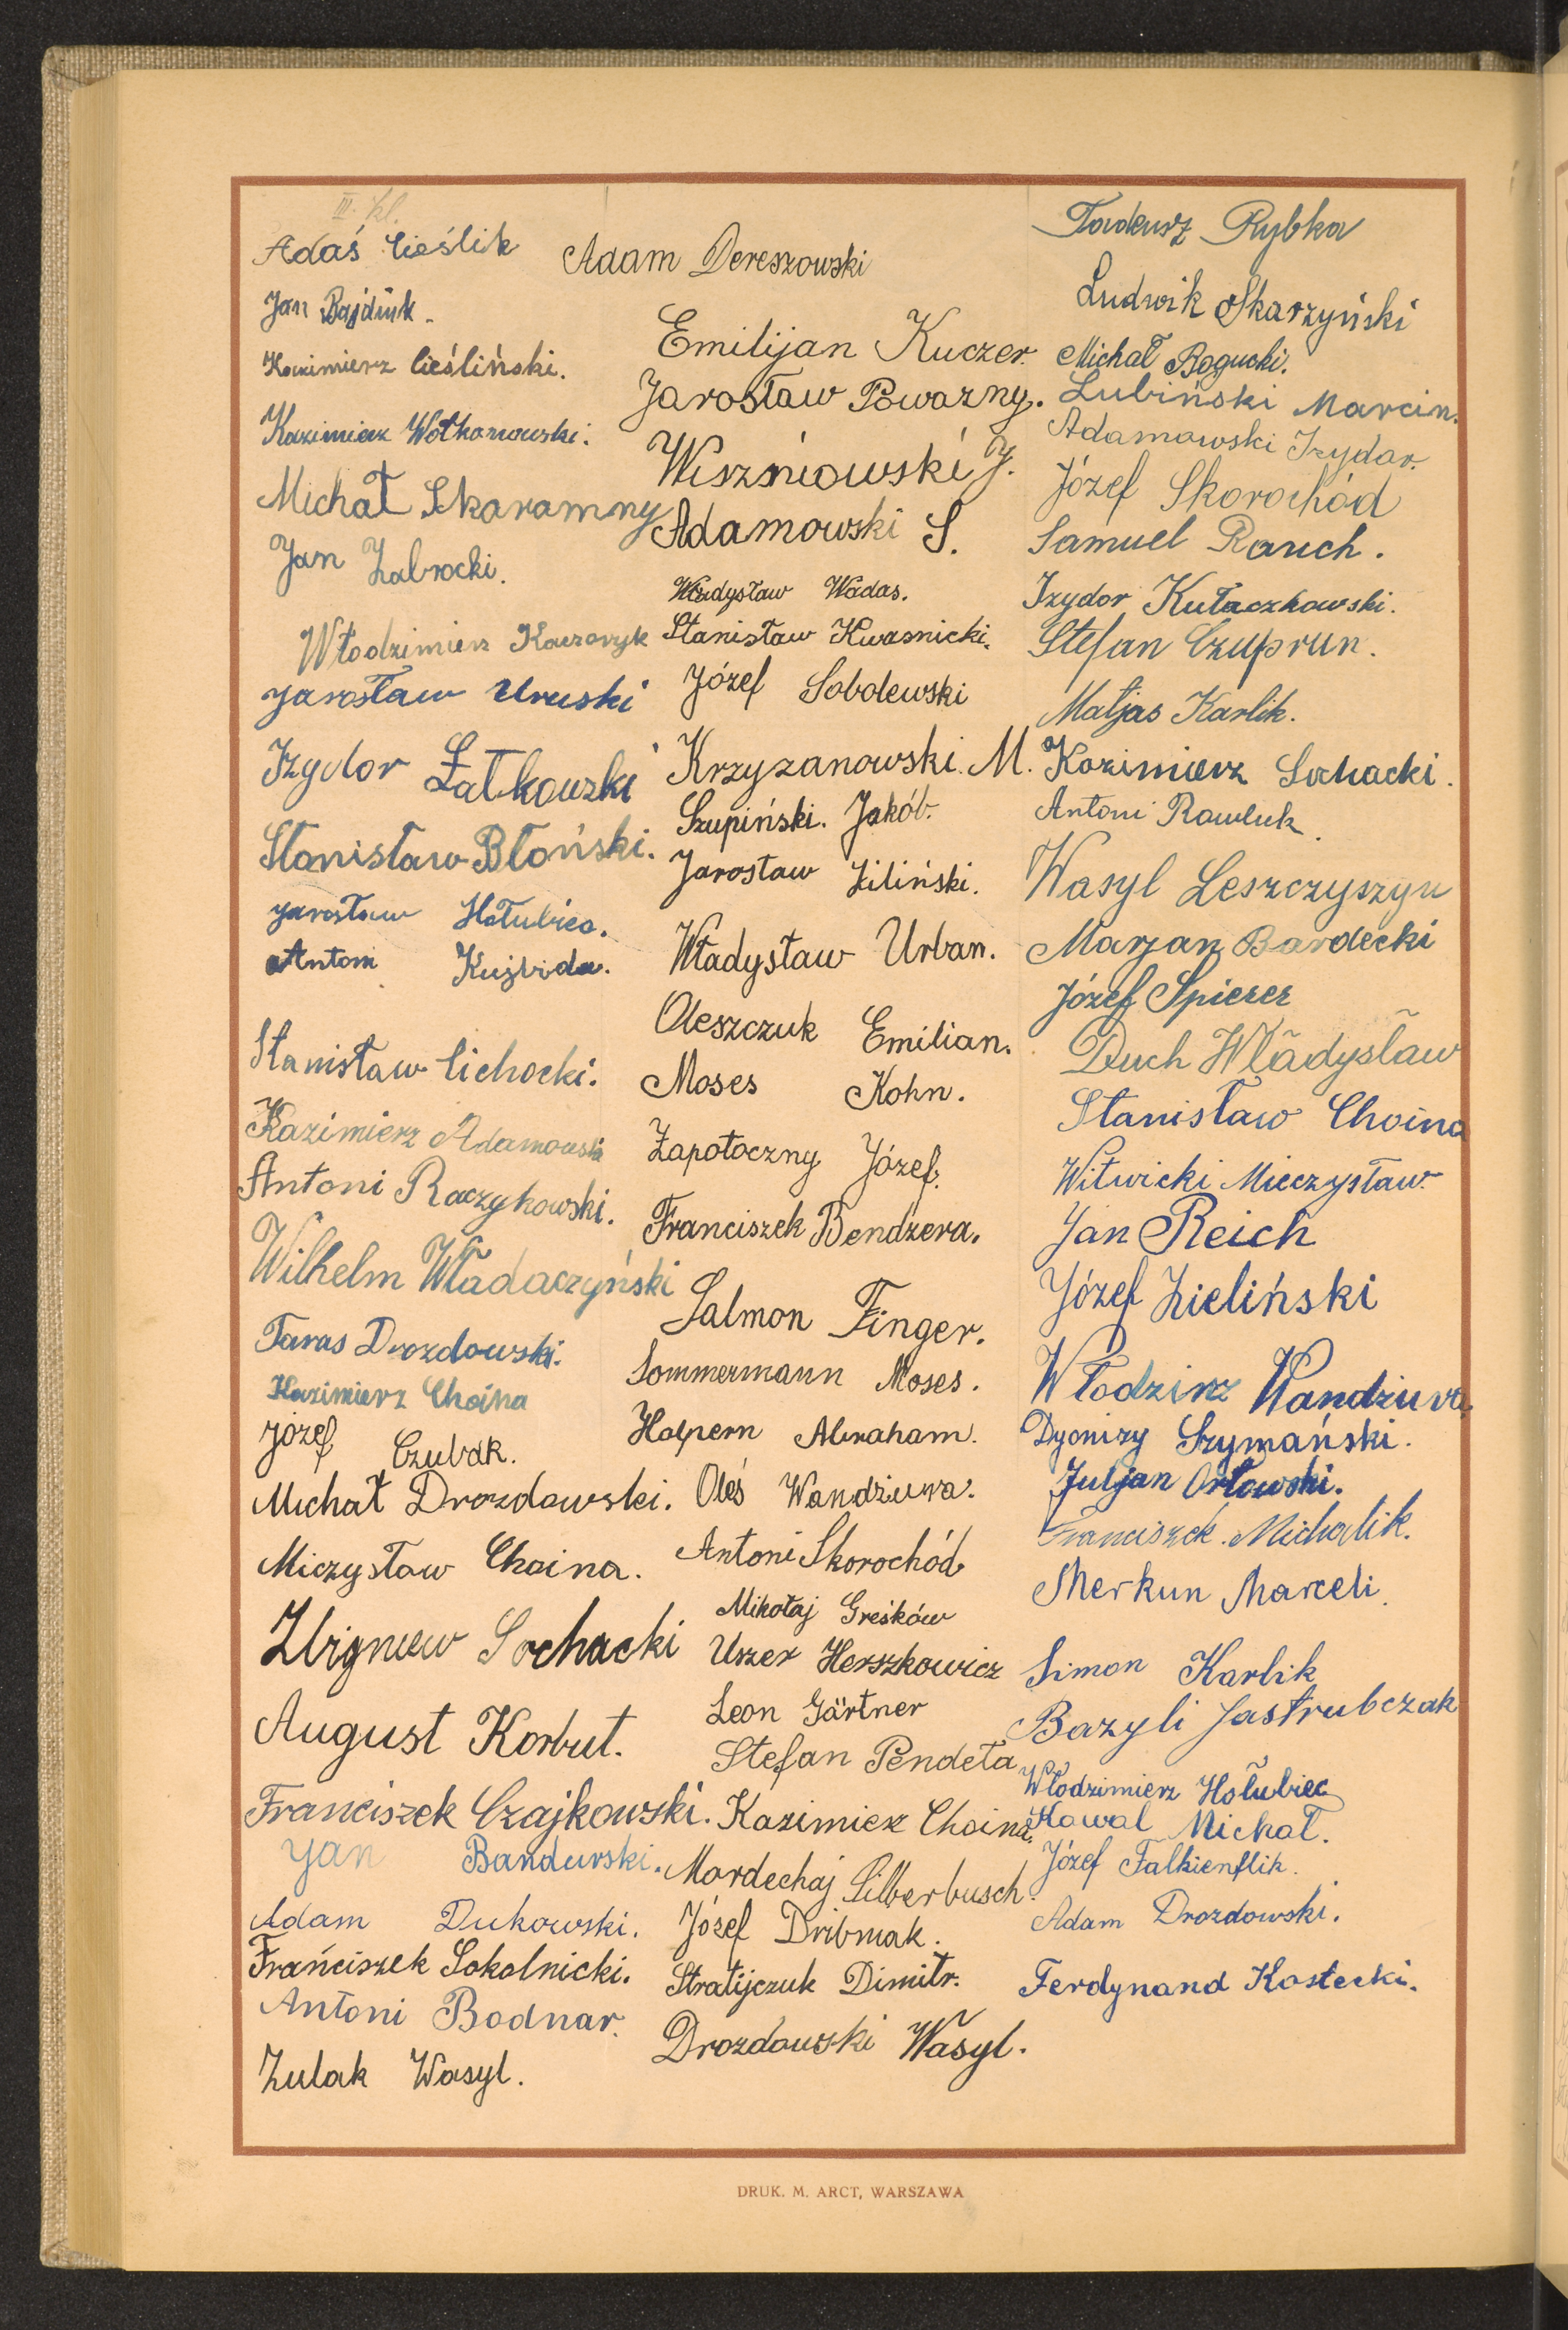 III. kl.
Adaś Cieślik
Jan Bajdiuk.
Kazimierz Cieśliński.
Kazimierz Wołkanowski.
Michał Skaramny
Jan Zabrocki.
Włodzimierz Kaszczyk
Jarosław Uruski
Izydor Łatkowski
Stanisław Błoński.
Jarosław Hołubiec.
Antoni Kujbida.
Stanisław Cichocki.
Kazimierz Adamowski
Antoni Raczykowski.
Wilhelm Władaczyński
Taras Drozdowski.
Kazimierz Choina
Józef Czubak.
Michał Drozdowski.
Miczysław Choina.
Zbigniew Sochacki
August Korbut.
Franciszek Czajkowski.
Jan Bandurski.
Adam Dukowski.
Franciszek Sokolnicki.
Antoni Bodnar.
Zulak Wasyl.
Adam Dereszowski
Emilijan Kuczer.
Jarosław Powazny.
Wiszniowski J.
Adamowski S.
Władysław Wadas.
Stanisław Kwasnicki.
Józef Sobolewski
Krzyzanowski. M.
Szupiński. Jakób.
Jarosław Ziliński.
Władysław Urban.
Oleszczuk Emilian.
Moses Kohn.
Zapotoczny Józef.
Franciszek Bendzera.
Salmon Finger.
Sommermann Moses.
Halpern Abraham.
Oleś Wandziura.
Antoni Skorochód
Mikołaj Greśków
Uszer Herszkowicz
Leon Gärtner
Stefan Pendeta
Kazimierz Choina.
Mordechaj Silberbusch.
Józef Dribniak.
Stratijczuk Dimitr.
Drozdowski Wasyl.
Tadeusz Rybka
Ludwik Skarzyński
Michał Bogucki.
Lubiński Marcin.
Adamowski Izydor.
Józef Skorochód
Samuel Rauch.
Izydor Kułaczkowski.
Stefan Czuprun.
Matjas Karlik.
Kazimierz Sochacki.
Antoni Rawluk.
Wasyl Leszczyszyn
Marjan Bardecki
Józef Spierer
Duch Władysław
Stanisław Choina
Witwicki Mieczysław.
Jan Reich
Józef Zieliński
Włodzirz Wandziura.
Dyonizy Szymański.
Juljan Orłowski.
Franciszek. Michalik.
Merkun Marceli.
Simon Karlik
Bazyli Jastrubczak
Włodzimierz Hołubiec
Kowal Michał.
Józef Falkienflik.
Adam Drozdowski.
Ferdynand Kostecki.
DRUK. M. ARCT, WARSZAWA